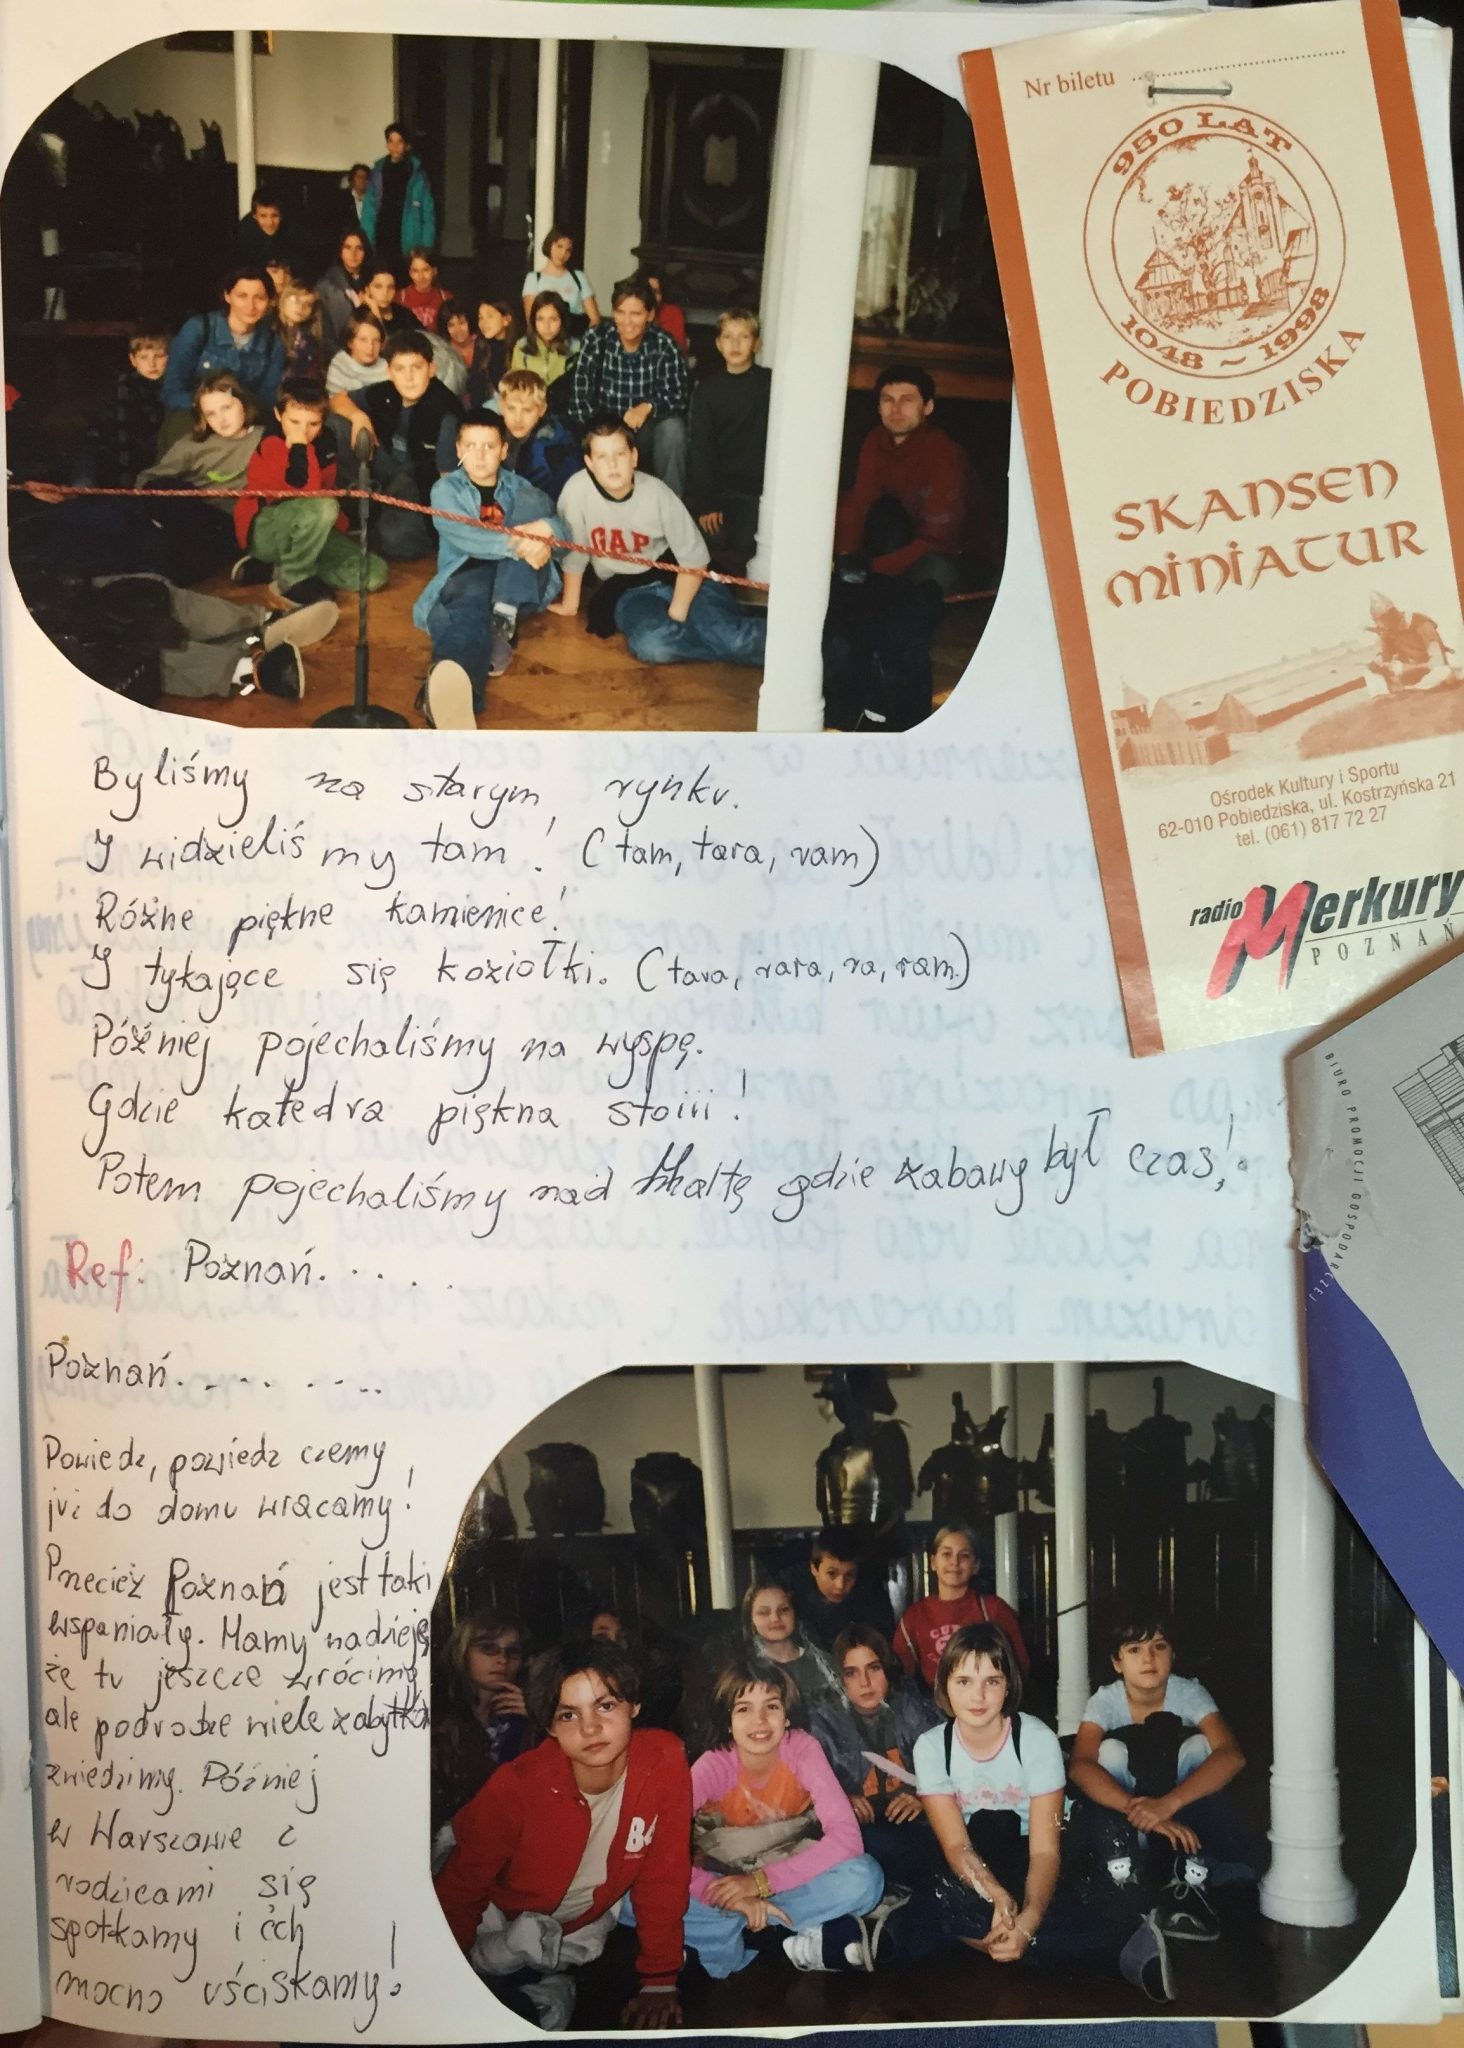 Nr biletu
950 LAT
1048 ~ 1998
POBIEDZISKA
SKANSEN
MINIATUR
Ośrodek Kultury i Sportu
62-010 Pobiedziska, ul. Kostrzyńska 21
tel. (061) 817 72 27
radio Merkury
POZNAŃ
BIURO PROMOCJI GOSPODARCZEJ
GAP
Byliśmy na starym rynku.
I widzieliśmy tam! (tam, tara, ram)
Różne piękne kamienice!
I tykające się koziołki. (tara, rara, ra, ram.)
Później pojechaliśmy na wyspę.
Gdzie katedra piękna stoiii!
Potem pojechaliśmy nad Maltę gdzie zabawy był czas!
Ref: Poznań.....
Poznań........
Powiedz, powiedz czemy
już do domu wracamy!
Przecież Poznań jest taki
wspaniały. Mamy nadzieję
że tu jeszcze wrócimy
ale podrodze wiele zabytków
zwiedzimy. Później
w Warszawie z
rodzicami się
spotkamy i ich
mocno uściskamy!